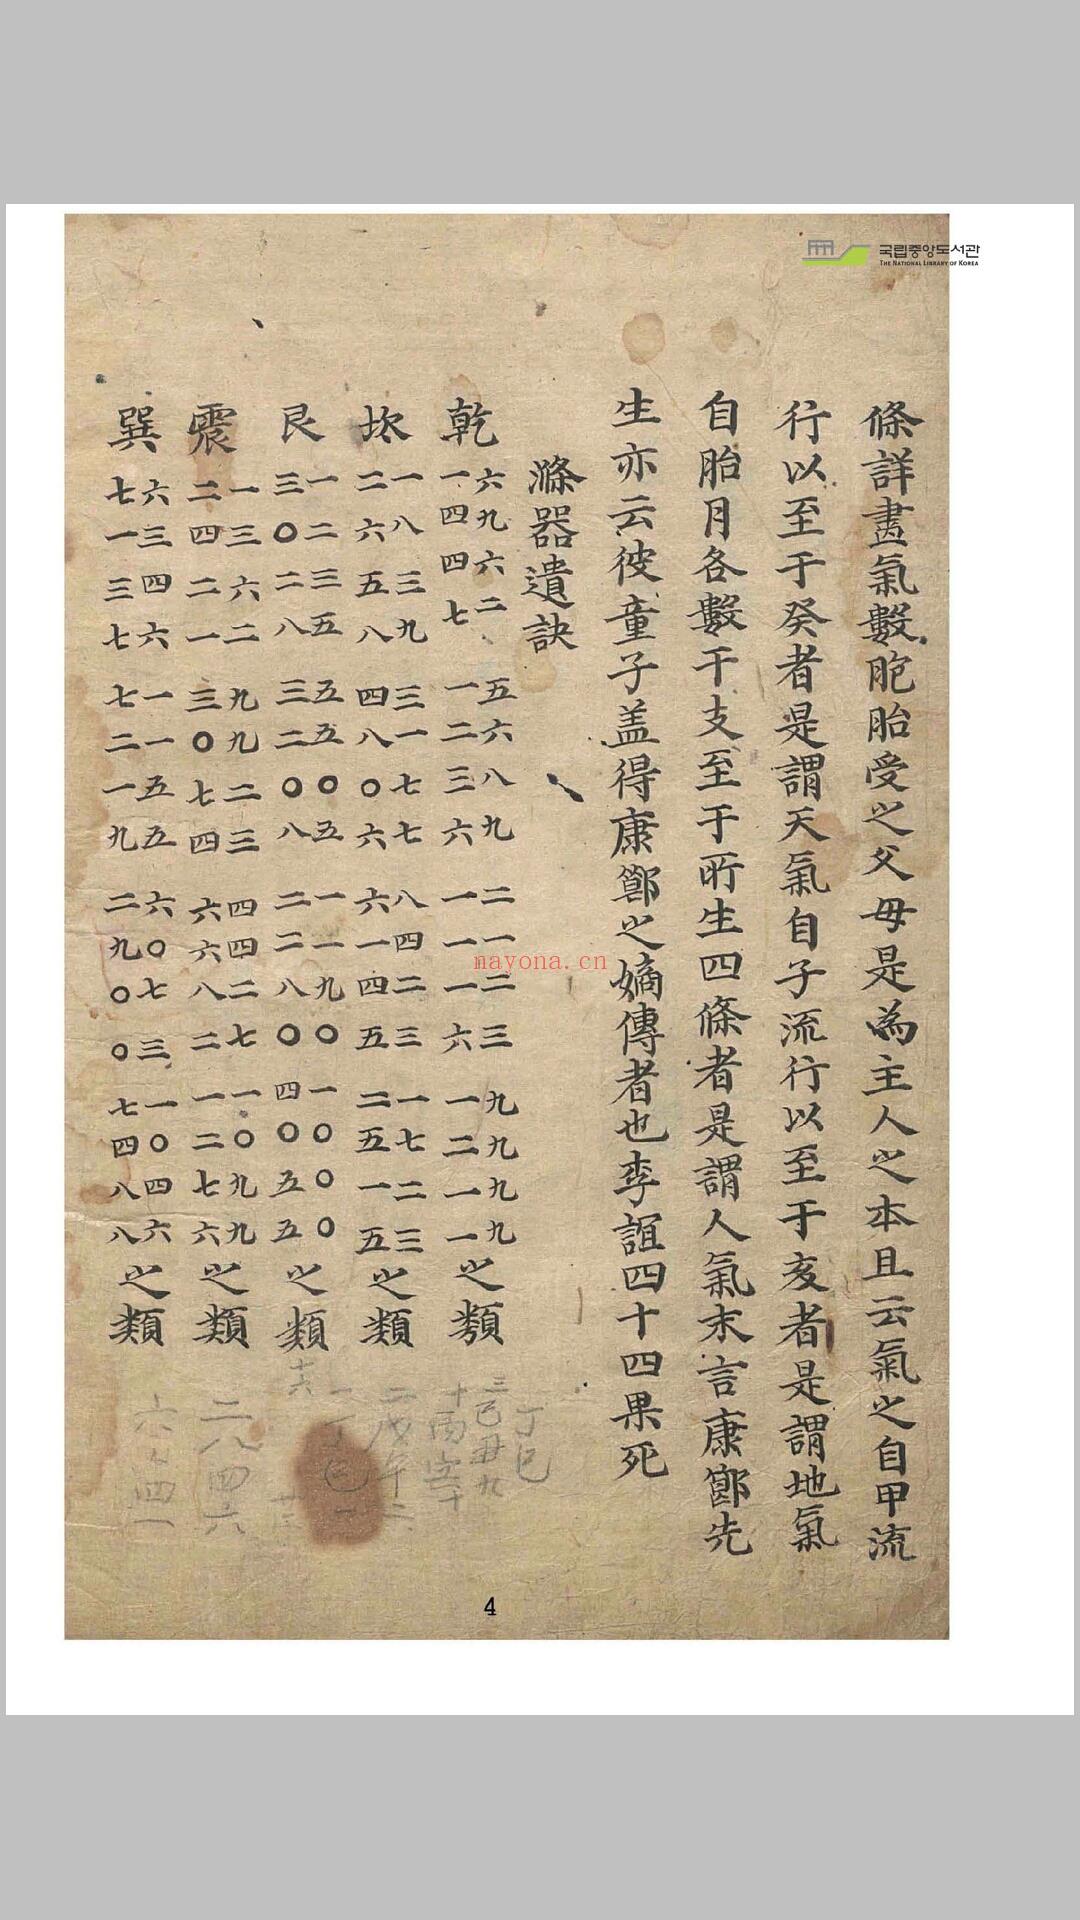 국립중앙도서관
THE NATIONAL LIBRARY OF KOREA
條詳晝氣數胞胎受之父母是為主人之本且云氣之自甲流
行以至于癸者是謂天氣自子流行以至于亥者是謂地氣
自胎月各數干支至于所生四條者是謂人氣末言康節先
生亦云彼童子盖得康節之嫡傳者也李誼四十四果死
滌器遺訣
乾
六九六二 五六八九 二一二三 九九九九
一四四七 一二三六 一一一六 一二一一
之類
坎
一八三九 三一七七 八四二三 一七二三
二六五八 四八〇六 六一四五 二五一五
之類
艮
一二三五 五五〇五 一一九〇 一〇〇〇
三〇二八 三二〇八 二二八〇 四〇五五
之類
震
一三六二 九九二三 四四二七 一〇九九
二四二一 三〇七四 六六八二 一二七六
之類
巽
六三四六 一一五五 六〇七三 一〇四六
七一三七 七二一九 二九〇〇 七四八八
之類
丁巳
三己丑九
二八四六
mayona.cn
4